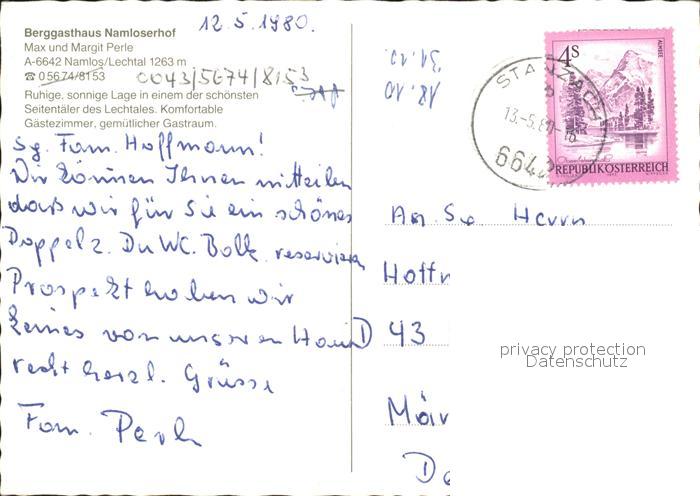 12.5.1980.
Berggasthaus Namloserhof
Max und Margit Perle
A-6642 Namlos/Lechtal 1263 m
☎ 05674/8153 0043/5674/8153
Ruhige, sonnige Lage in einem der schönsten
Seitentäler des Lechtales. Komfortable
Gästezimmer, gemütlicher Gastraum.
Sg. Fam. Hoffmann!
Wir können Ihnen mitteilen
daß wir für Sie ein schönes
Doppelz. Du WC. Balk. reservieren
Prospekt haben wir
keines von unseren Haus
recht herzl. Grüsse
Fam. Perle
4S
ALMSEE
REPUBLIK ÖSTERREICH
STANZACH
13.-5.80-16
6642
An Se Herrn
Hoffm
D 43
Mär
privacy protection
Datenschutz